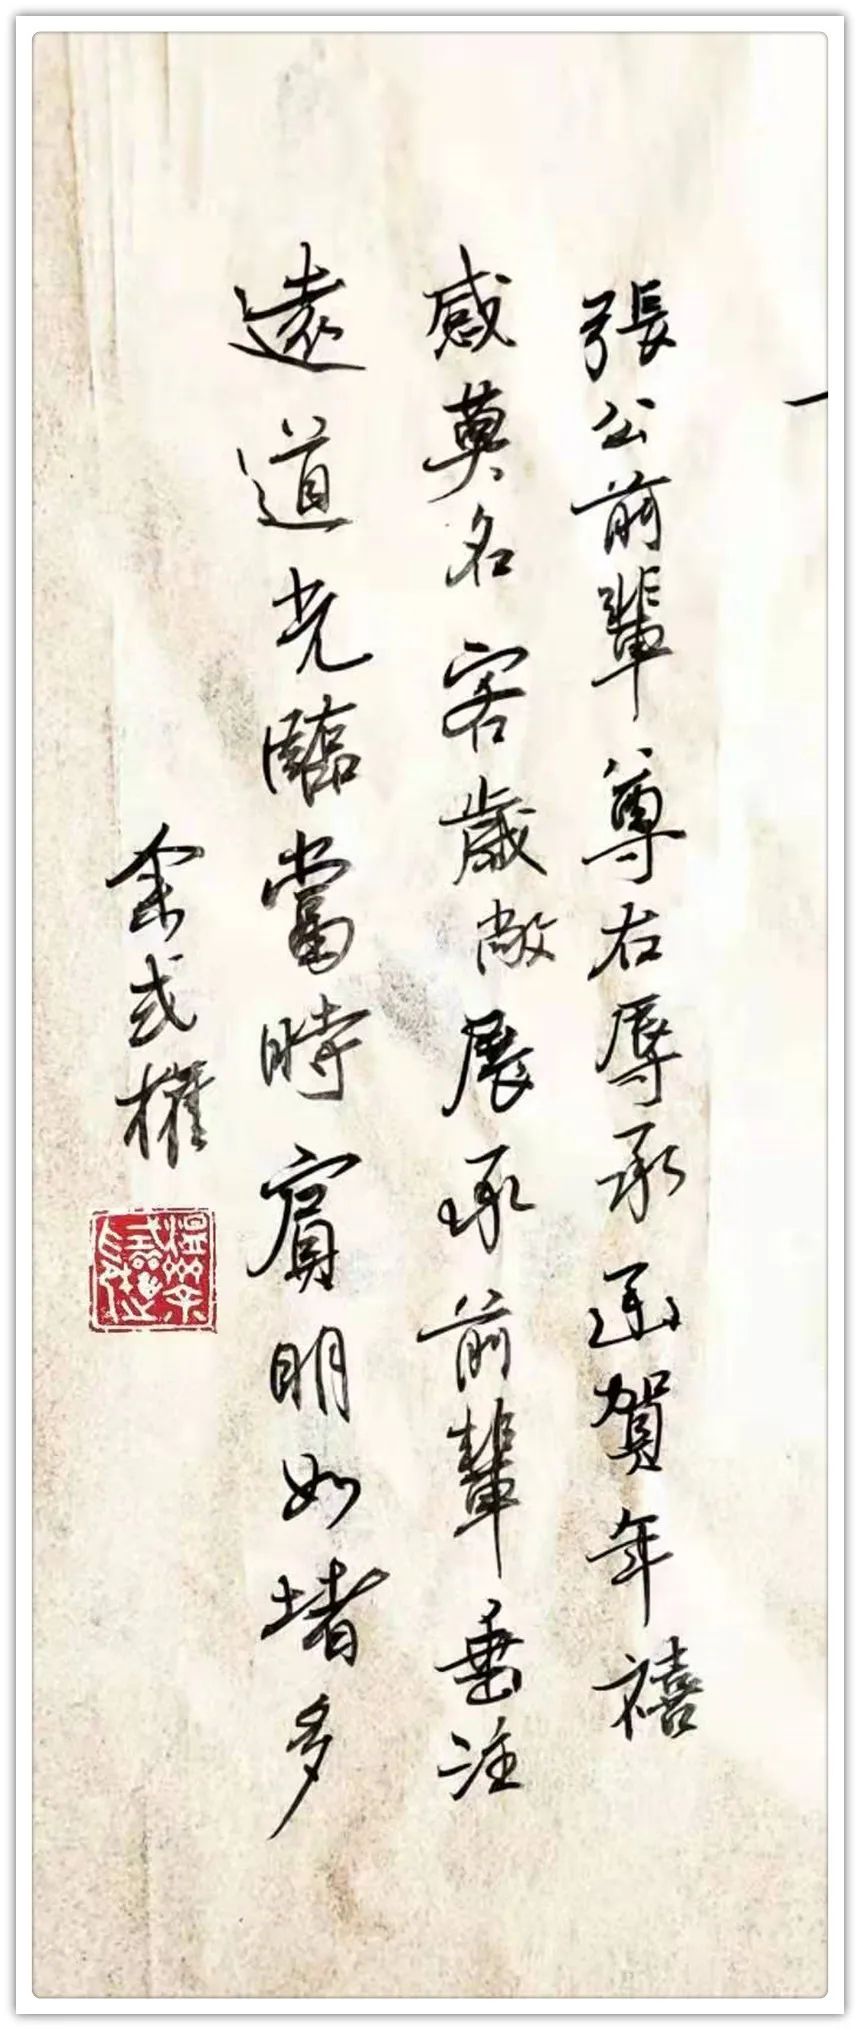 一
張公前輩尊右辱承函賀年禧
感莫名客歲敝展承前輩垂注
遠道光臨當時賓朋如堵多
余式權